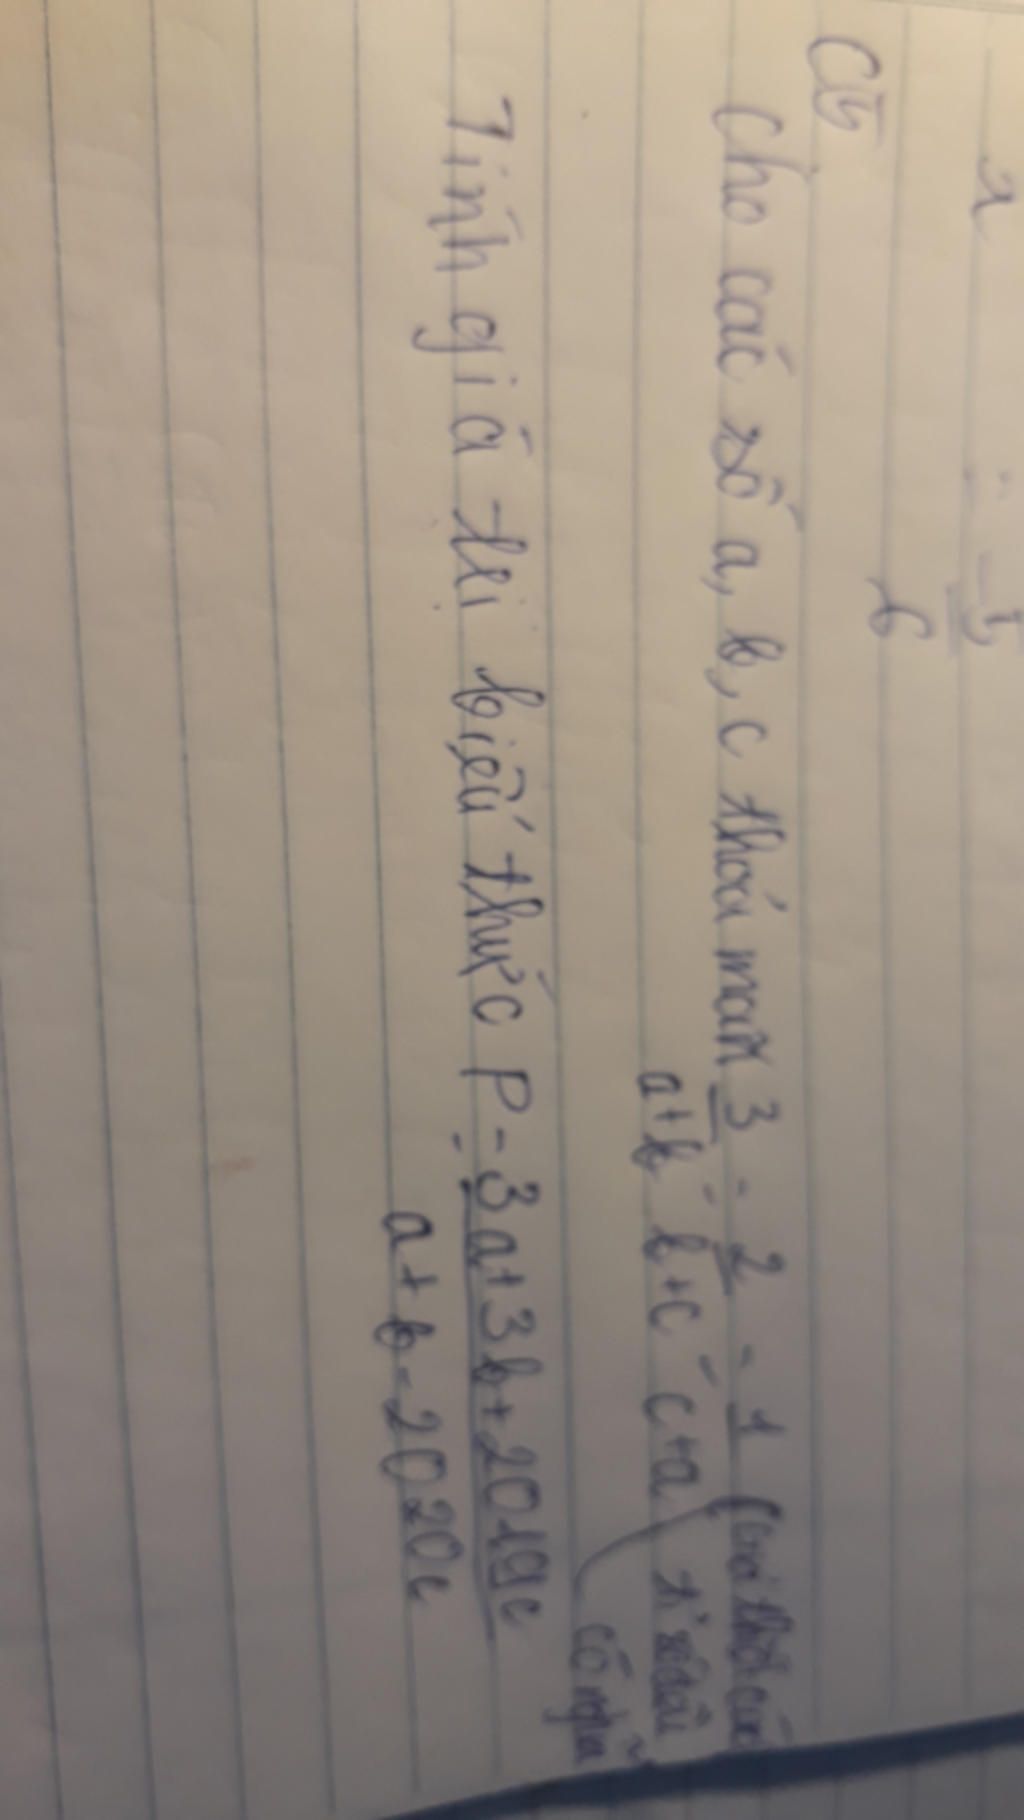 1
6
C5
Cho các số a, b, c thoả mãn 3/a+b = 2/b+c = 1/c+a (giả thiết các tỉ số đều
có nghĩa
Tính giá trị biểu thức P = 3a+3b+2019c/a+b-2020c